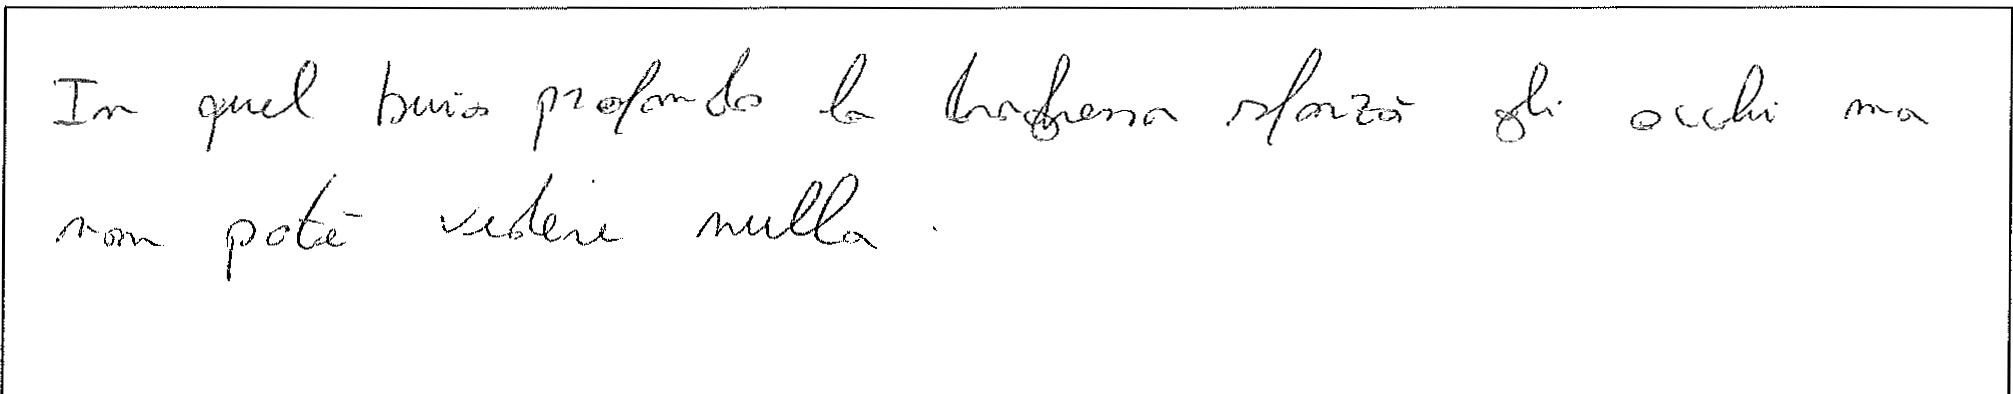 In quel buio profondo la sforzò gli occhi ma
non poté vedere nulla.